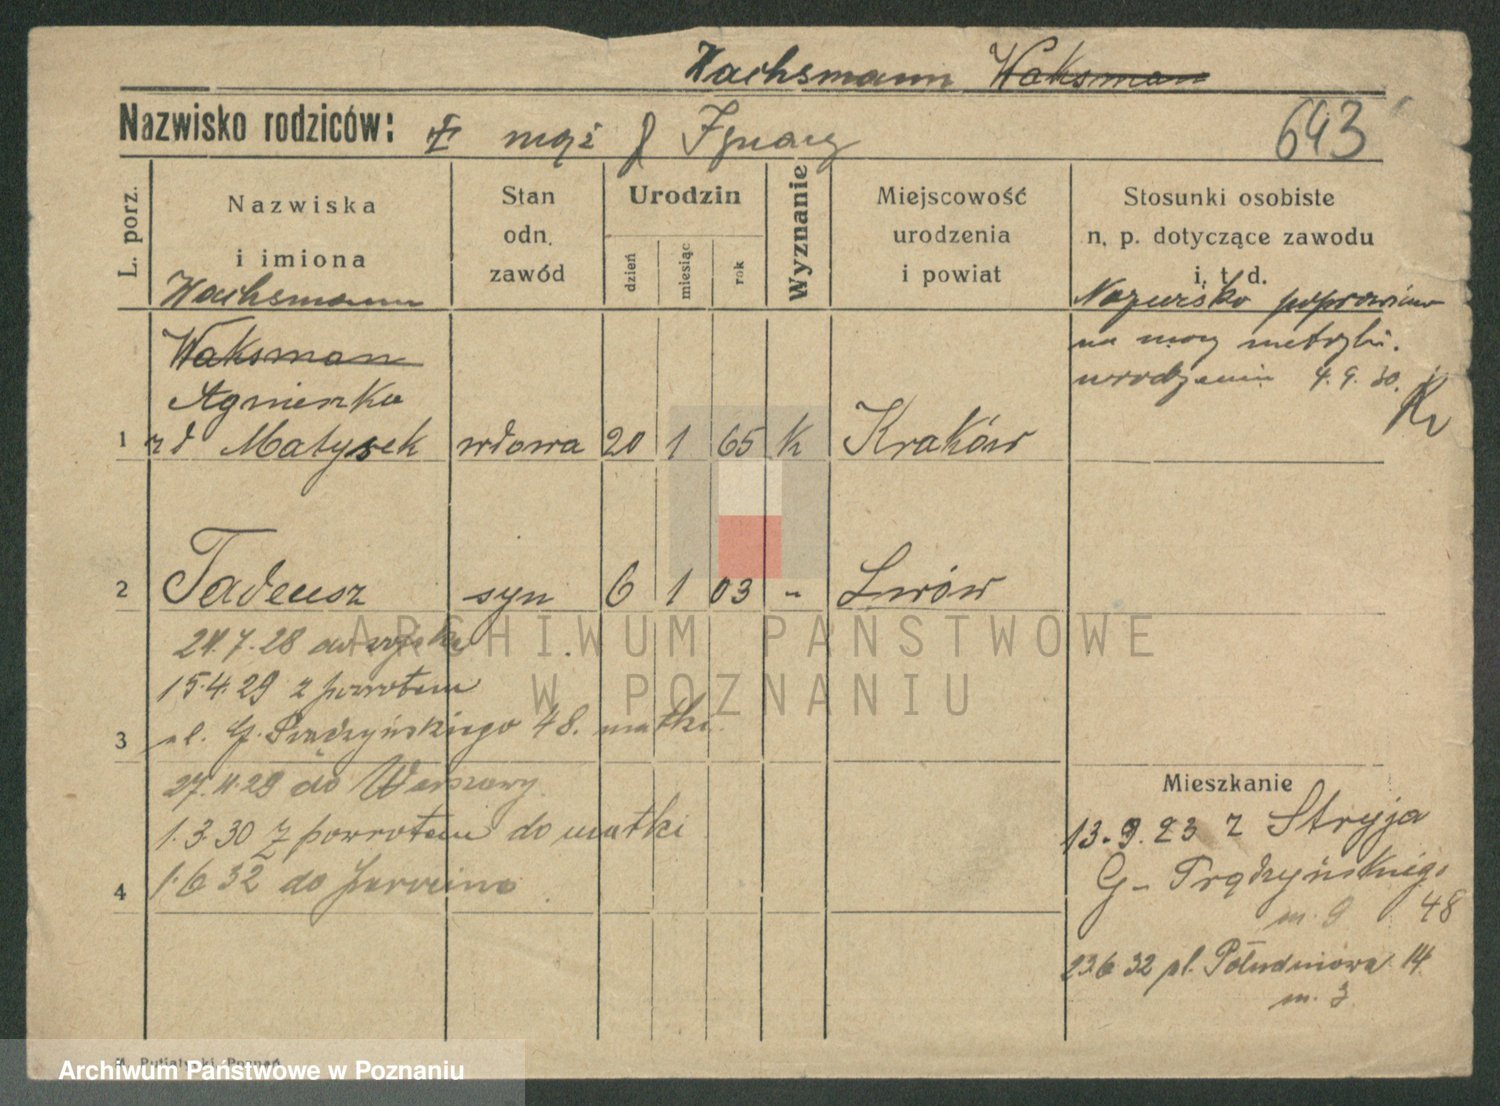 Wachsmann Waksman
Nazwisko rodziców: mąż Ignacy 643
L. porz.
Nazwiska
i imiona
Stan
odn.
zawód
Urodzin
dzień
miesiąc
rok
Wyznanie
Miejscowość
urodzenia
i powiat
Stosunki osobiste
n. p. dotyczące zawodu
i. t. d.
Wachsmann
Nazwisko poprawiono
na mocy metryki
urodzenia 4.9.30.
Waksman
Agnieszka
1 rd Matysek wdowa 20 1 65 k Kraków
2 Tadeusz syn 6 1 03 - Lwów
7.28 do wojska
15.4.29 z powrotem
3 ul. G. Prądzyńskiego 48. matki
do Warszawy
1.3.30 z powrotem do matki
4 1.6 32 do Jarocina
Mieszkanie
13.9.23 z Stryja
G. Prądzyńskiego
m. 9 48
23.6 32 ul. Południowa 14
m. 3
Poznań
ARCHIWUM PAŃSTWOWE
W POZNANIU
Archiwum Państwowe w Poznaniu